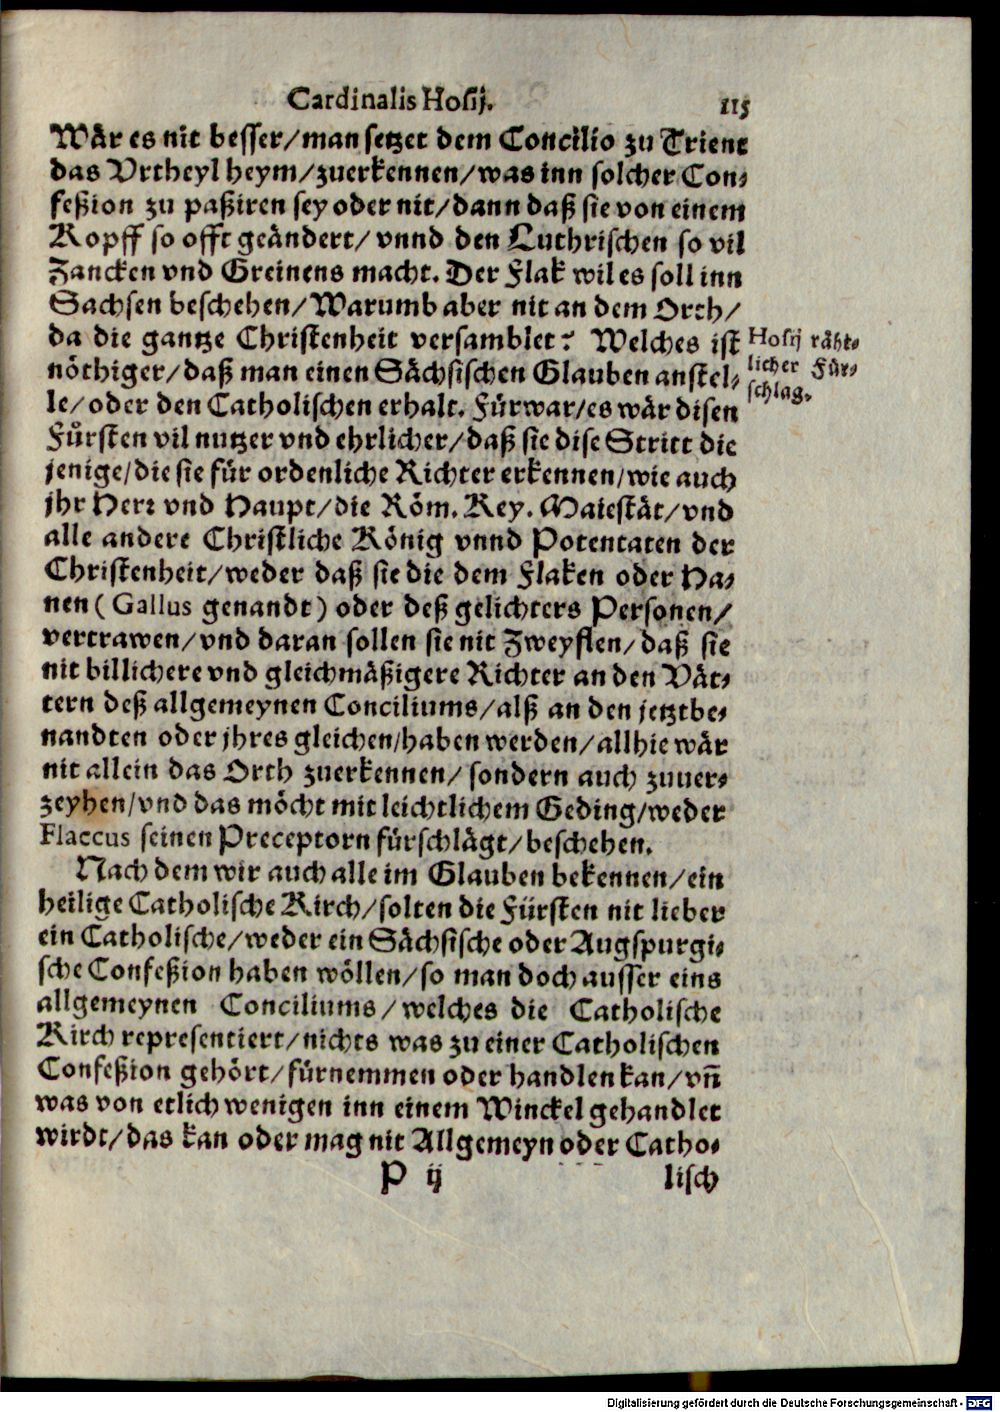 Cardinalis Hosij. 115
Wår es nit besser/man setzet dem Concilio zu Trient
das Vrtheyl heym/zuerkennen/was inn solcher Con-
feßion zu paßiren sey oder nit/dann daß sie von einem
Kopff so offt geändert/vnnd den Luthrischen so vil
Zancken vnd Greinens macht. Der Flak wil es soll inn
Sachsen beschehen/Warumb aber nit an dem Orth/
da die gantze Christenheit versamblet? Welches ist
nöthiger/daß man einen Såchsischen Glauben anstel-
le/oder den Catholischen erhalt. Fürwar/es wär disen
Fürsten vil nutzer vnd ehrlicher/daß sie dise Stritt die
jenige/die sie für ordenliche Richter erkennen/wie auch
jhr Herr vnd Haupt/die Röm. Key. Maiestät/vnd
alle andere Christliche König vnnd Potentaten der
Christenheit/weder daß sie die dem Flaken oder Ha-
nen (Gallus genandt) oder deß gelichters Personen/
vertrawen/vnd daran sollen sie nit Zweyflen/daß sie
nit billichere vnd gleichmäßigere Richter an den Vät-
tern deß allgemeynen Conciliums/alß an den jetztbe-
nandten oder jhres gleichen/haben werden/allhie wär
nit allein das Orth zuerkennen/sondern auch zuuer-
zeyhen/vnd das möcht mit leichtlichem Geding/weder
Flaccus seinen Preceptorn fürschlägt/beschehen.
Nach dem wir auch alle im Glauben bekennen/ein
heilige Catholische Kirch/solten die Fürsten nit lieber
ein Catholische/weder ein Sächsische oder Augspurgi-
sche Confeßion haben wöllen/so man doch ausser eins
allgemeynen Conciliums/welches die Catholische
Kirch representiert/nichts was zu einer Catholischen
Confeßion gehört/fürnemmen oder handlen kan/vñ
was von etlich wenigen inn einem Winckel gehandlet
wirdt/das kan oder mag nit Allgemeyn oder Catho-
P ij lisch
Hosij räht-
licher Für-
schlag.
Digitalisierung gefördert durch die Deutsche Forschungsgemeinschaft - DFG